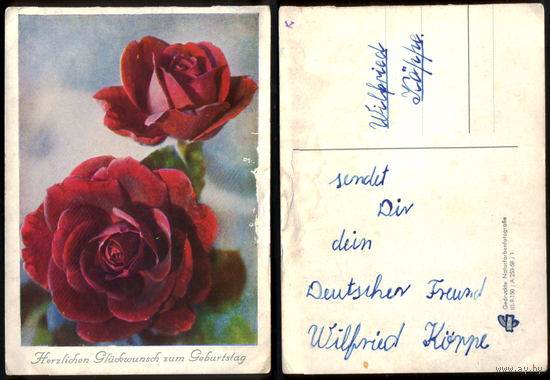 Herzlichen Glückwunsch zum Geburtstag
Wilfried
Köppe
sendet
Dir
dein
Deutscher Freund
Wilfried Köppe
Gedruckte Naturfarbenfotografie
III-9-150 / A 253-58 / 1
www.ay.by